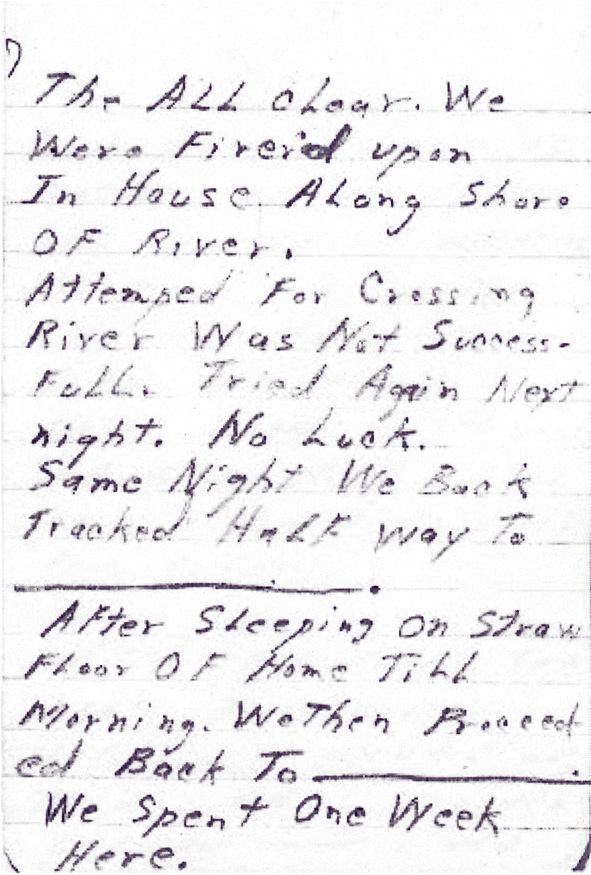 The ALL cLear. We
Were Fireid upon
In House ALong Shore
OF River.
Attemped For Crossing
River Was Not Success-
FuLL. Tried Again Next
night. No Luck.
Same Night We Back
Tracked HaLF way To
____________.
AFter SLeeping on Straw
FLoor OF Home TiLL
Morning. We Then Proceed
ed Back To ____________.
We Spent One Week
Here.